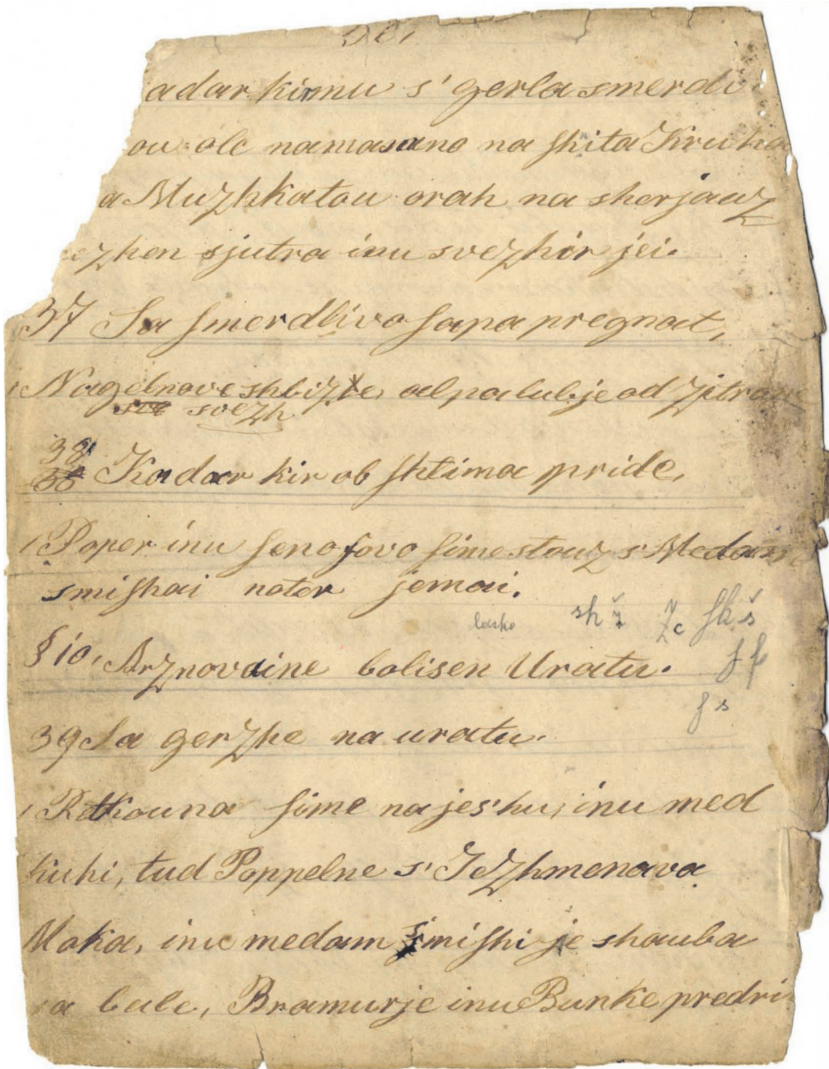 adar kirmu s' gerla smerdi
ou olc namasano na ſhita Kruha
a Muzhkatou orah na sherjauz
ezhen sjutra inu svezhir jei.
37 Sa ſmerdlivo ſapa pregnat,
Nagelnove shbizke, al palubje od Zitrou
svezh
38 Kadar kir ob ſhtima pride,
1 Poper inu ſenofovo ſime stouz s' Medam
smiſhai notor jemai.
lasko sh ž z c ſh š
§ 10, Arznovaine bolisen Uratu. ſ ſ
ſ s
39 Sa gerzhe na uratu.
1 Retkouna ſime na jeshu, inu med
kuhi, tud Poppelne s' Jezhmenava
Moka, inu medam ſmiſhi je shauba
sa bule, Bramurje inu Bunke predri